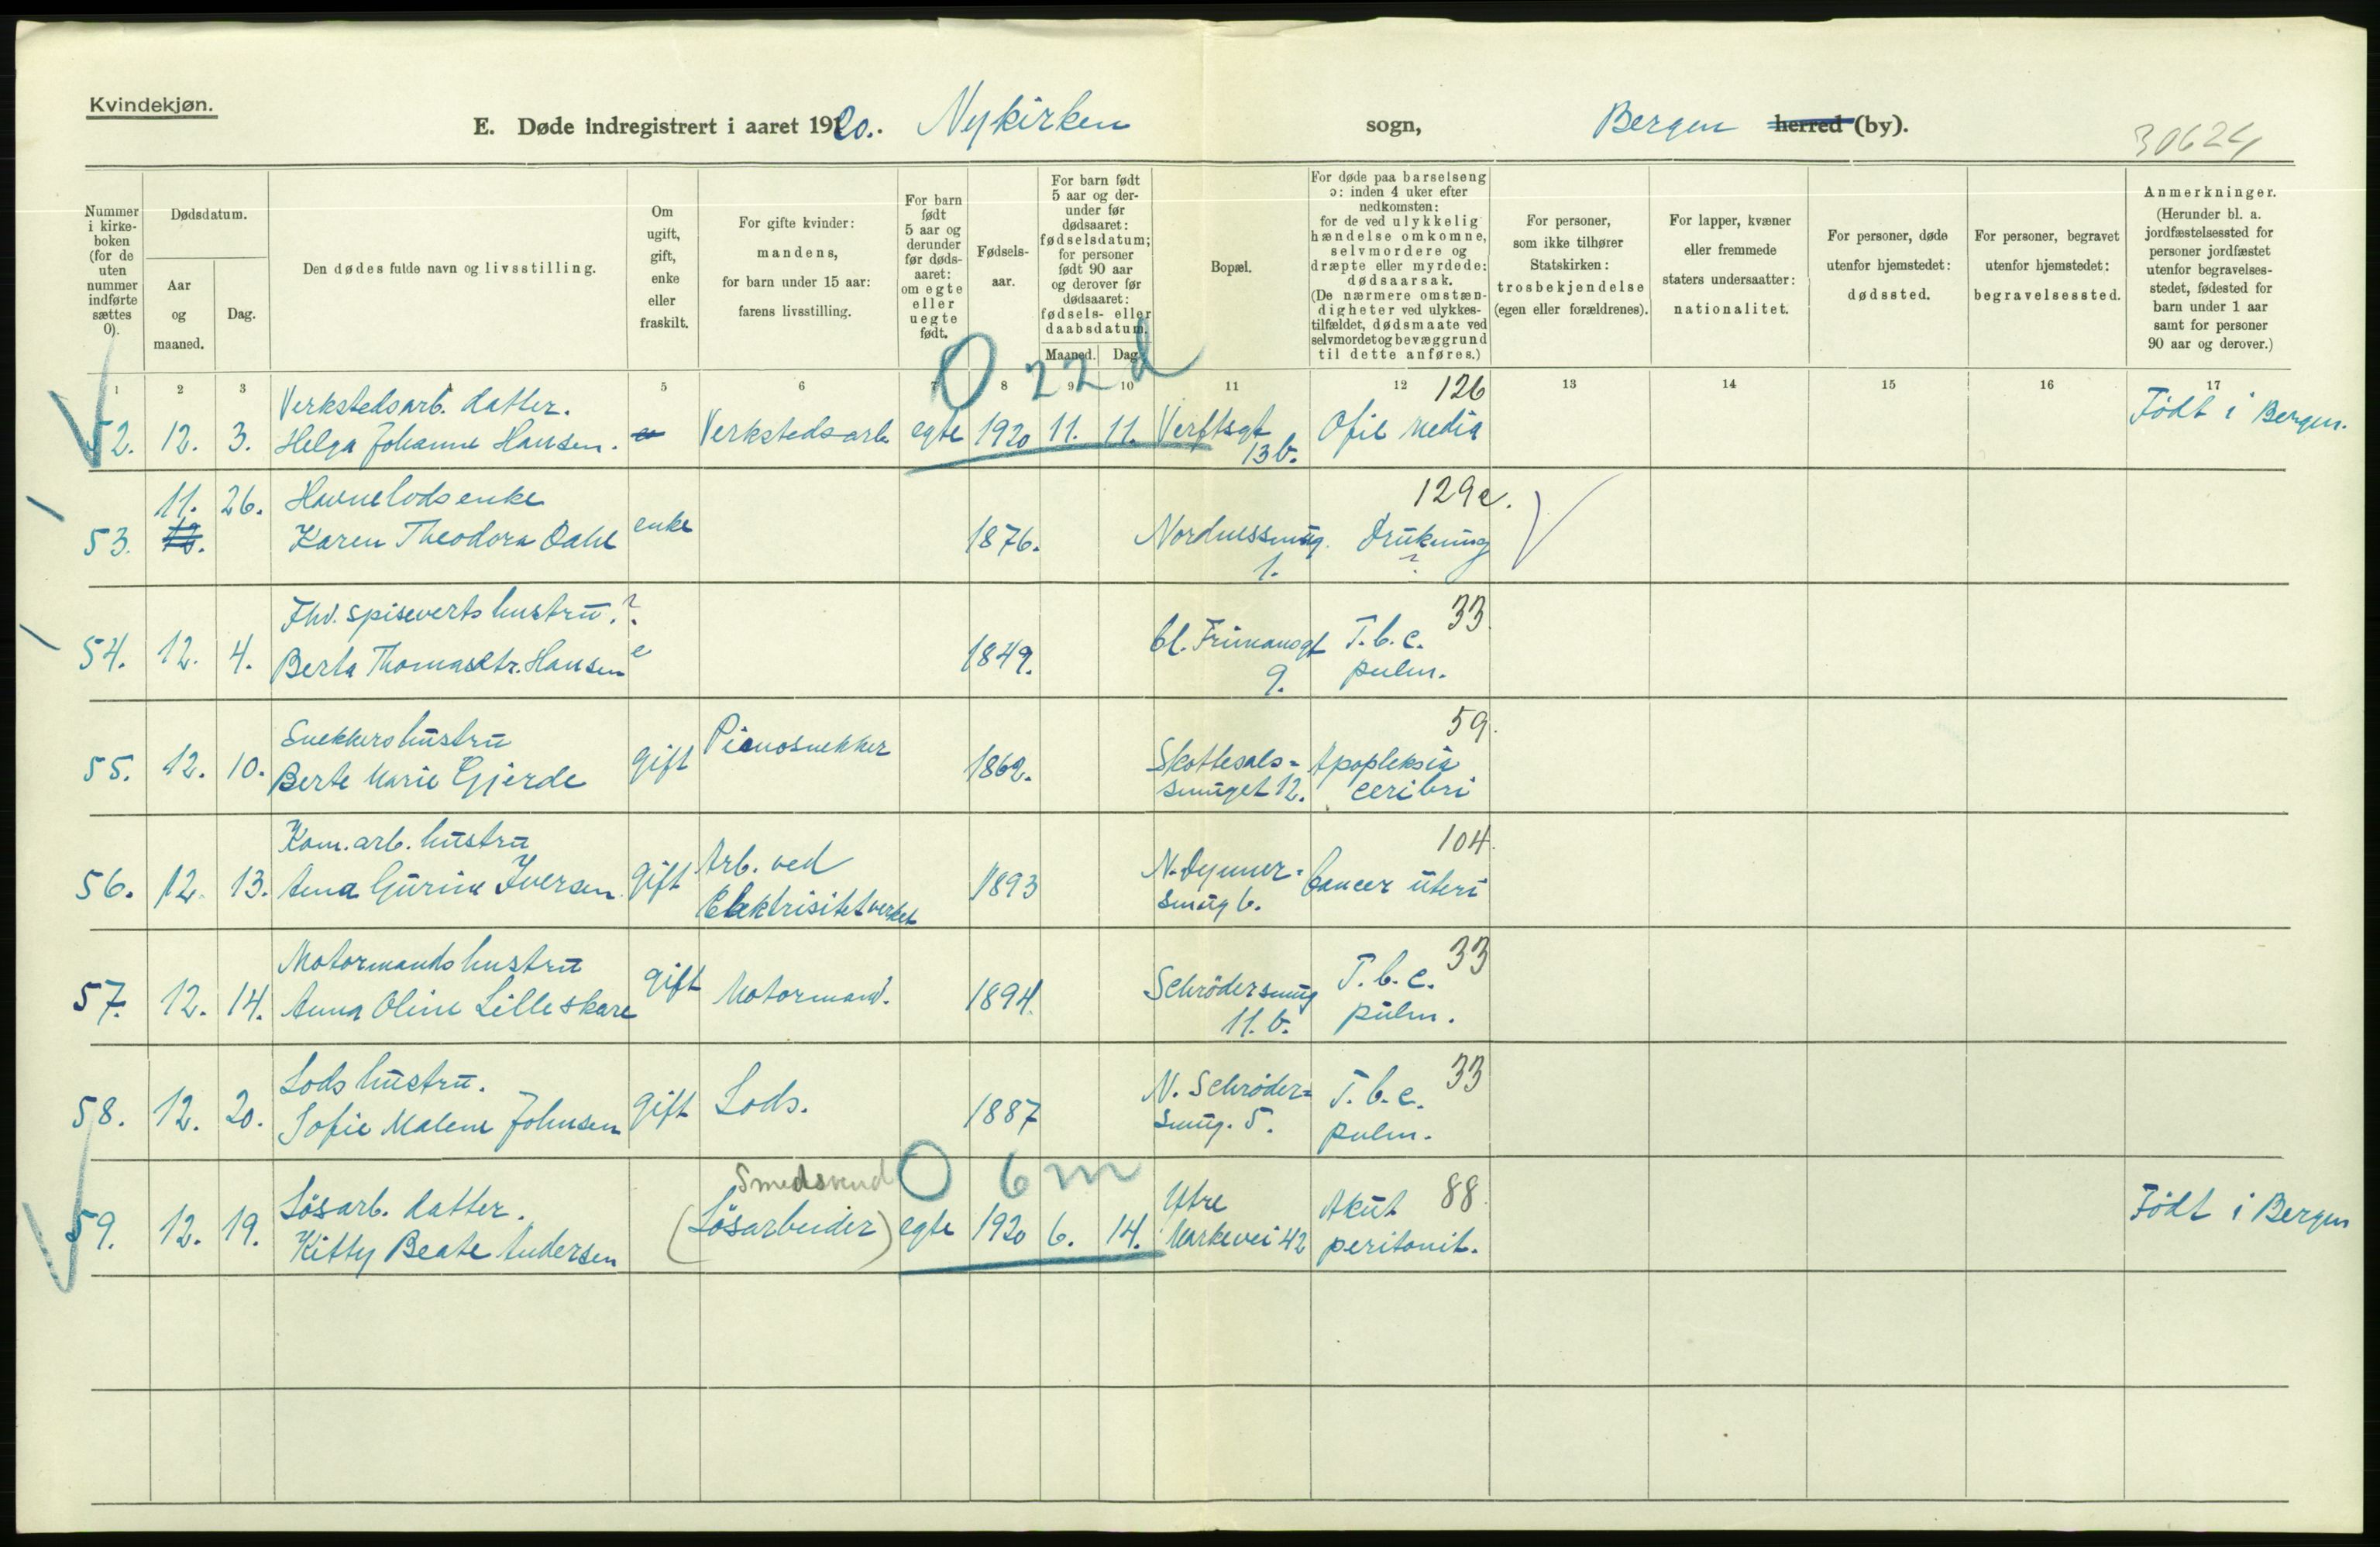 Kvindekjøn.
E. Døde indregistrert i aaret 1920. Nykirken sogn, Bergen herred (by).
30624
Nummer i kirke-boken (for de uten nummer indførte sættes 0).
Dødsdatum.
Aar og maaned.
Dag.
Den dødes fulde navn og livsstilling.
Om ugift, gift, enke eller fraskilt.
For gifte kvinder: mandens, for barn under 15 aar: farens livsstilling.
For barn født 5 aar og derunder før døds-aaret: om egte eller uegte født.
Fødsels-aar.
For barn født 5 aar og der-under før dødsaaret: fødselsdatum; for personer født 90 aar og derover før dødsaaret: fødsels- eller daabsdatum.
Maaned. Dag.
Bopæl.
For døde paa barselseng ɔ: inden 4 uker efter nedkomsten: for de ved ulykkelig hændelse omkomne, selvmordere og dræpte eller myrdede: dødsaarsak. (De nærmere omstæn-digheter ved ulykkes-tilfældet, dødsmaate ved selvmordet og bevæggrund til dette anføres.)
For personer, som ikke tilhører Statskirken: trosbekjendelse (egen eller forældrenes).
For lapper, kvæner eller fremmede staters undersaatter: nationalitet.
For personer, døde utenfor hjemstedet: dødssted.
For personer, begravet utenfor hjemstedet: begravelsessted.
Anmerkninger. (Herunder bl. a. jordfæstelsessted for personer jordfæstet utenfor begravelses-stedet, fødested for barn under 1 aar samt for personer 90 aar og derover.)
1 2 3 4 5 6 7 8 9 10 11 12 13 14 15 16 17
0 22 d
Verkstedsarb. datter. 126
52. 12. 3. Helga Johanne Hansen. Verkstedsarb egte 1920 11. 11. Verftsgt 13b. Ofil media Født i Bergen.
11. 26. Havnelods enke 129e.
53. 12. Karen Theodora Dahl enke 1876. Nordnessmug. 1. Drukning ?
Fhv. spiseverts hustru. ? 33.
54. 12. 4. Berta Thomasdtr. Hansen e 1849. Cl. Frimansgt 9. T.b.c. pulm.
Snekkers hustru 59.
55. 12. 10. Berte Marie Gjerde gift Pianosnekker 1862. Skottesals=smuget 12. Apopleksia ceribri
Kom. arb. hustru 104.
56. 12. 13. Anna Gurine Iversen gift Arb. ved Elektrisitetverket 1893 N. Dynner=smug 6. Cancer uteri
Motormands hustru 33
57. 12. 14. Anna Oline Lilleskare gift Motormand. 1894. Schrödersmug 11.b. T.b.c. pulm.
Lods hustru. 33
58. 12. 20. Sofie Malene Johnsen gift Lods. 1887 N. Schröder=smug. 5. T.b.c. pulm.
Smedsvend 0 6 m
Løsarb. datter. 88.
59. 12. 19. Kitty Beate Andersen (Løsarbeider) egte 1920 6. 14. Ytre Markevei 42 Akut peritonit. Født i Bergen